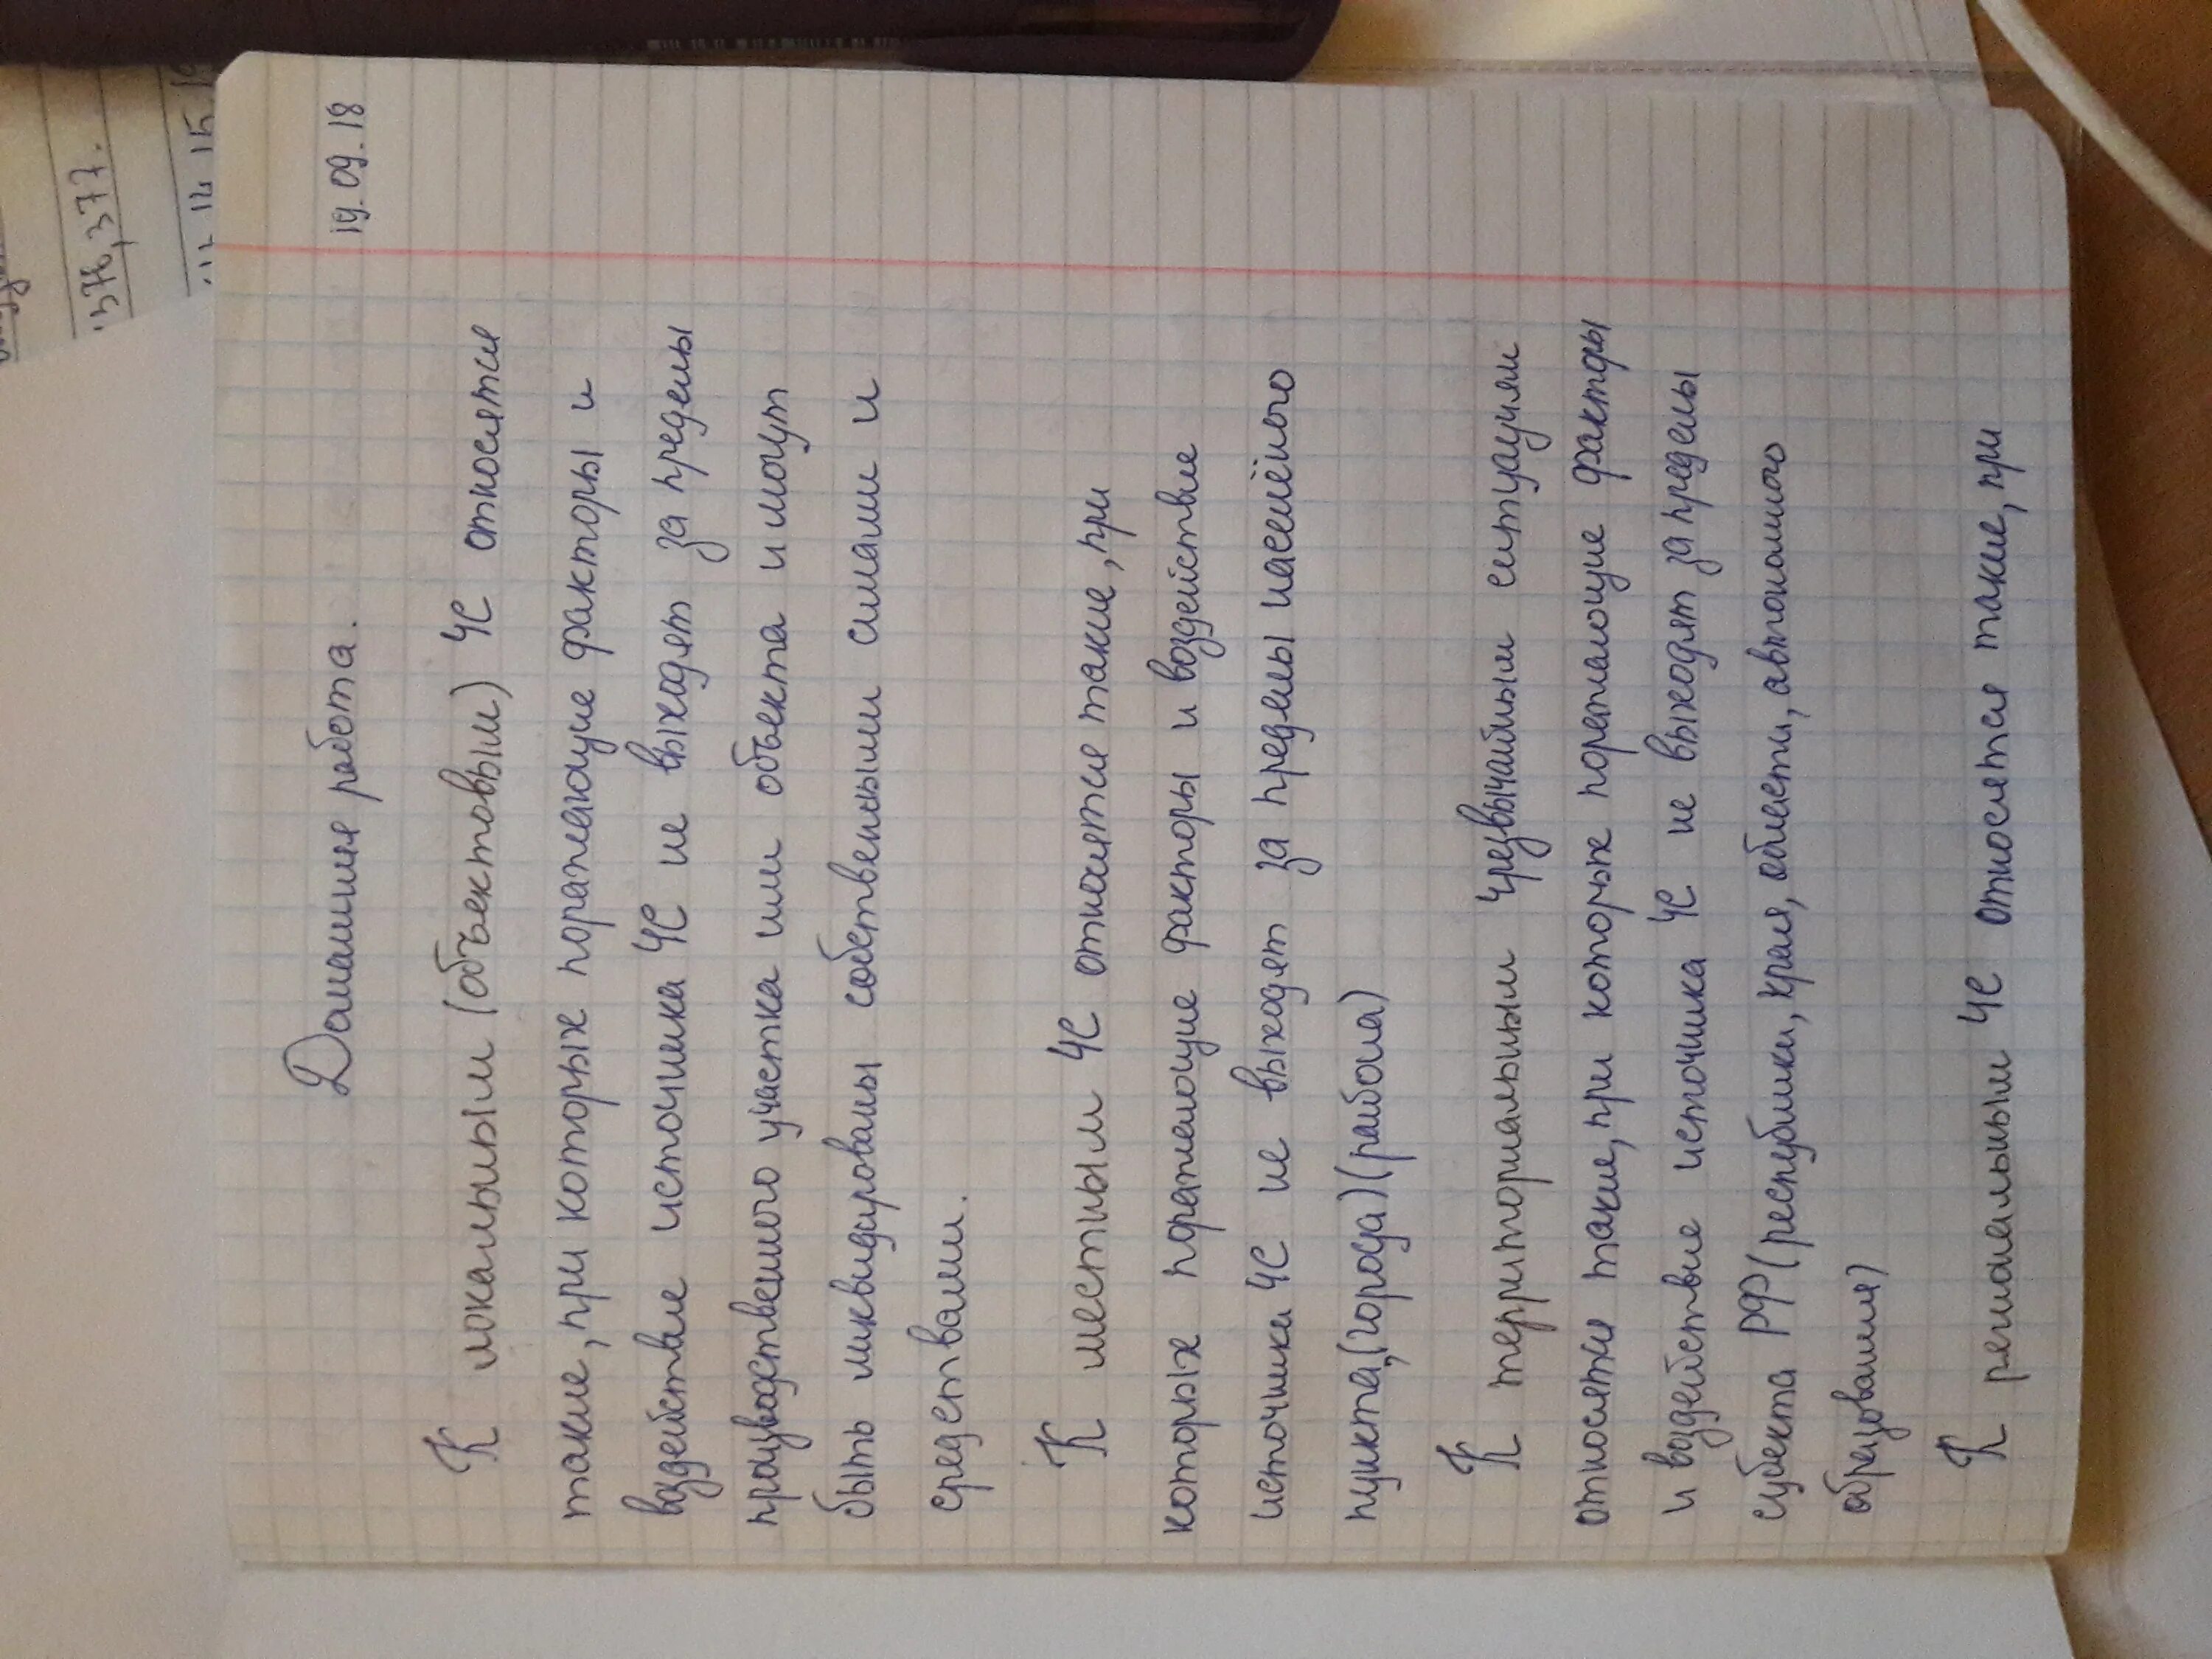 19.09.18
Домашняя работа.
К локальным (объектовым) ЧС относятся
такие, при которых поражающие факторы и
воздействие источника ЧС не выходят за пределы
производственного участка или объекта и могут
быть ликвидированы собственными силами и
средствами.
К местным ЧС относятся такие, при
которых поражающие факторы и воздействие
источника ЧС не выходят за пределы населённого
пункта, (города) (района)
К территориальным чрезвычайным ситуациям
относятся такие, при которых поражающие факторы
и воздействие источника ЧС не выходят за пределы
субъекта РФ (республики, края, области, автономного
образования)
К региональным ЧС относятся такие, при
376, 377.